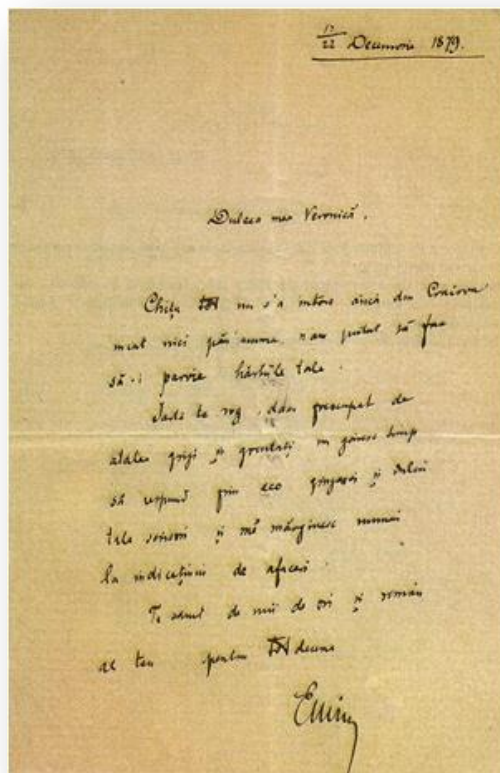 22 Decemvrie 1879.
Dulcea mea Veronică,
Chițu tot nu s'a întors încă din Craiova
încât nici pân'acuma n'am putut să fac
să-i parvie hârtiile tale.
Iartă te rog, dacă preocupat de
atâtea griji și greutăți nu găsesc timp
să respund prin eco gingașei și dulcei
tale scrisori și mĕ mărginesc numai
la indicațiuni de afaceri.
Te sărut de mii de ori și rămân
al tău pentru totdeauna
Emin